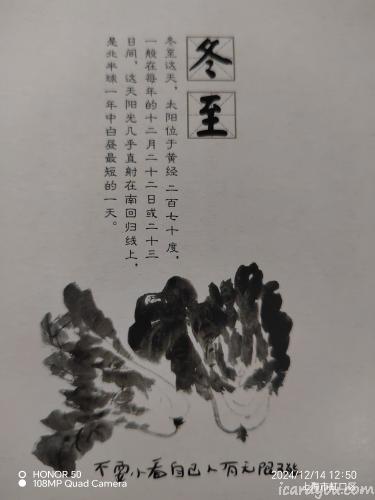 冬至
冬至这天，太阳位于黄经二百七十度，
一般在每年的十二月二十二日或二十三
日间，这天阳光几乎直射在南回归线上，
是北半球一年中白昼最短的一天。
不要小看自己人有无限可能
HONOR 50
108MP Quad Camera
2024/12/14 12:50
上海市虹口区
icarayou.com